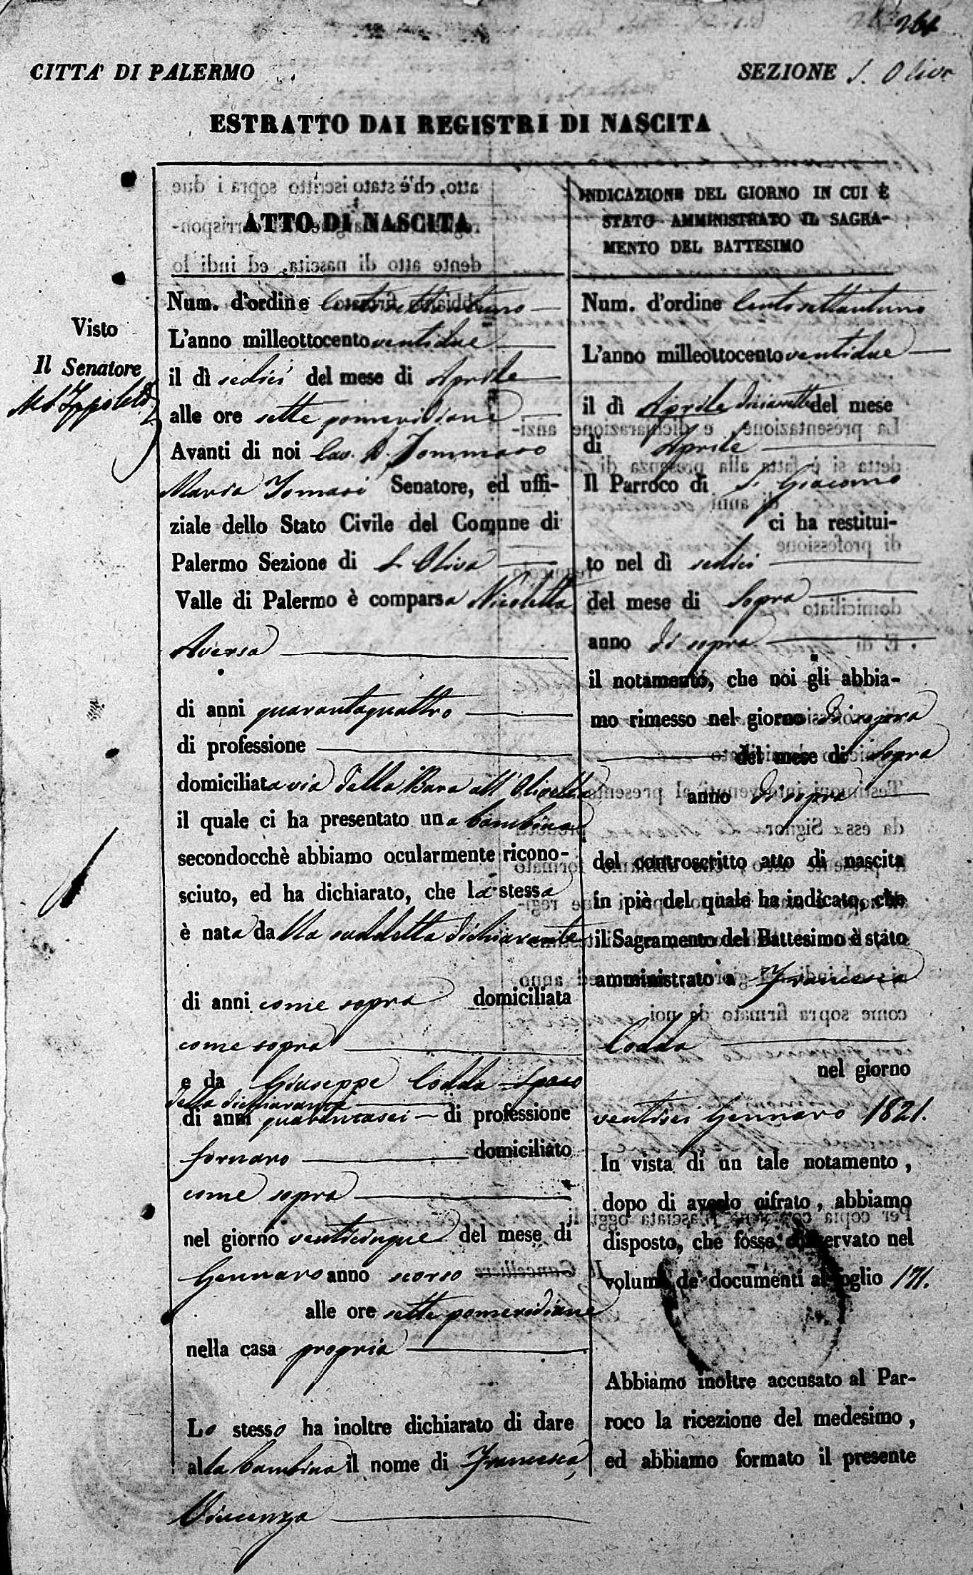 261
CITTA' DI PALERMO
SEZIONE S. Oliva
ESTRATTO DAI REGISTRI DI NASCITA
ATTO DI NASCITA
Num. d'ordine Centosettantuno
L'anno milleottocento ventidue
il dì sedici del mese di Aprile
alle ore sette pomeridiane
Avanti di noi Cav. D. Tommaso
Maria Tomasi Senatore, ed uffi-
ziale dello Stato Civile del Comune di
Palermo Sezione di S. Oliva
Valle di Palermo è comparsa Nicoletta
Aversa
di anni quarantaquattro
di professione
domiciliata via della Bara all'Olivella
il quale ci ha presentato una bambina
secondocchè abbiamo ocularmente ricono-
sciuto, ed ha dichiarato, che la stessa
è nata dalla suddetta dichiarante
di anni come sopra domiciliata
come sopra
e da Giuseppe Codda sposo
della dichiarante
di anni quarantasei di professione
fornaro domiciliato
come sopra
nel giorno venticinque del mese di
Gennaro anno scorso
alle ore sette pomeridiane
nella casa propria
Lo stesso ha inoltre dichiarato di dare
alla bambina il nome di Francesca,
Vincenza
Visto
Il Senatore
INDICAZIONE DEL GIORNO IN CUI È
STATO AMMINISTRATO IL SAGRA-
MENTO DEL BATTESIMO
Num. d'ordine Centosettantuno
L'anno milleottocento ventidue
il dì Aprile diciasette del mese
di Aprile
Il Parroco di S. Giacomo
ci ha restitui-
to nel dì sedici
del mese di Sopra
anno di sopra
il notamento, che noi gli abbia-
mo rimesso nel giorno di sopra
del mese di Sopra
anno di sopra
del controscritto atto di nascita
in piè del quale ha indicato, che
il Sagramento del Battesimo è stato
amministrato a Francesca
Codda
nel giorno
ventisei Gennaro 1821.
In vista di un tale notamento,
dopo di averlo cifrato, abbiamo
disposto, che fosse conservato nel
volume de' documenti al foglio 171.
Abbiamo inoltre accusato al Par-
roco la ricezione del medesimo,
ed abbiamo formato il presente